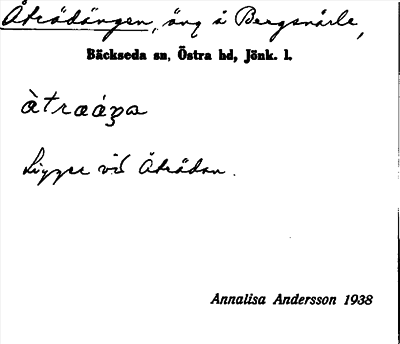 Åträdängen, äng å Bergsnärle,
Bäckseda sn, Östra hd, Jönk. l.
Ligger vid Åträdan.
Annalisa Andersson 1938